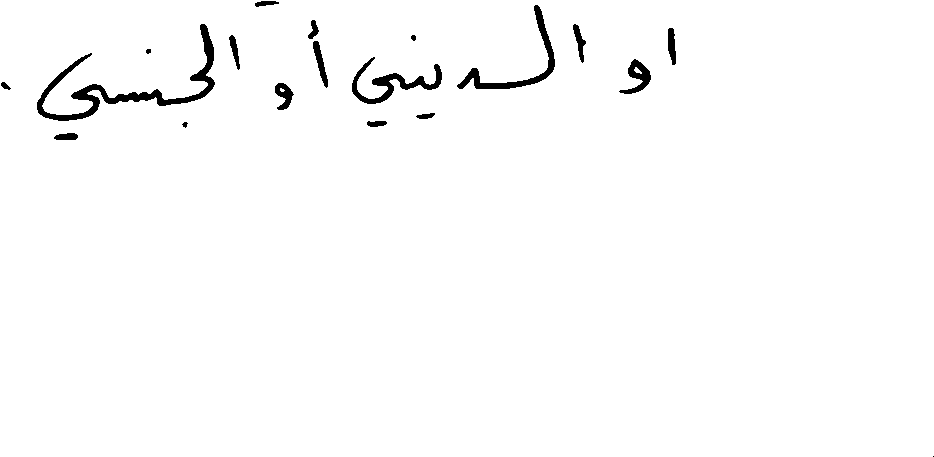 او الديني أو الجنسي .